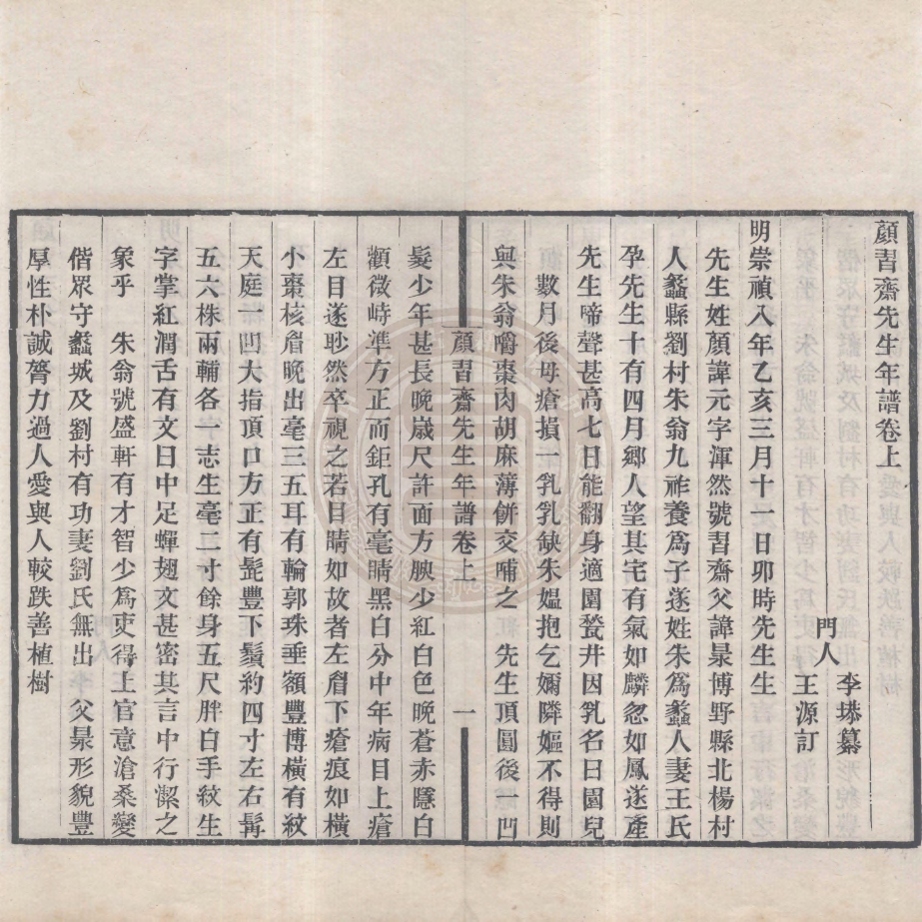 顏習齋先生年譜卷上
門人
李塨纂
王源訂
明崇禎八年乙亥三月十一日卯時先生生
先生姓顏諱元字渾然號習齋父諱㫤博野縣北楊村
人蠡縣劉村朱翁九祚養爲子遂姓朱爲蠡人妻王氏
孕先生十有四月鄉人望其宅有氣如麟忽如鳳遂產
先生啼聲甚高七日能翻身適園甃井因乳名曰園兒
數月後母瘡損一乳乳缺朱媼抱乞嬭隣嫗不得則
與朱翁嚼棗肉胡麻薄餅交哺之 先生頂圓後一凹
顏習齋先生年譜卷上 一
髮少年甚長晚歲尺許面方腴少紅白色晚蒼赤隱白
顴微峙準方正而鉅孔有毫睛黑白分中年病目上瘡
左目遂眇然卒視之若目睛如故者左眉下瘡痕如橫
小棗核眉晚出毫三五耳有輪郭珠垂額豐博橫有紋
天庭一凹大指頂口方正有髭豐下鬚約四寸左右髯
五六株兩輔各一志生毫二寸餘身五尺胖白手紋生
字掌紅潤舌有文曰中足蟬翅文甚密其言中行潔之
象乎 朱翁號盛軒有才智少爲吏得上官意滄桑變
偕眾守蠡城及劉村有功妻劉氏無出 父㫤形貌豐
厚性朴誠膂力過人愛與人較跌善植樹